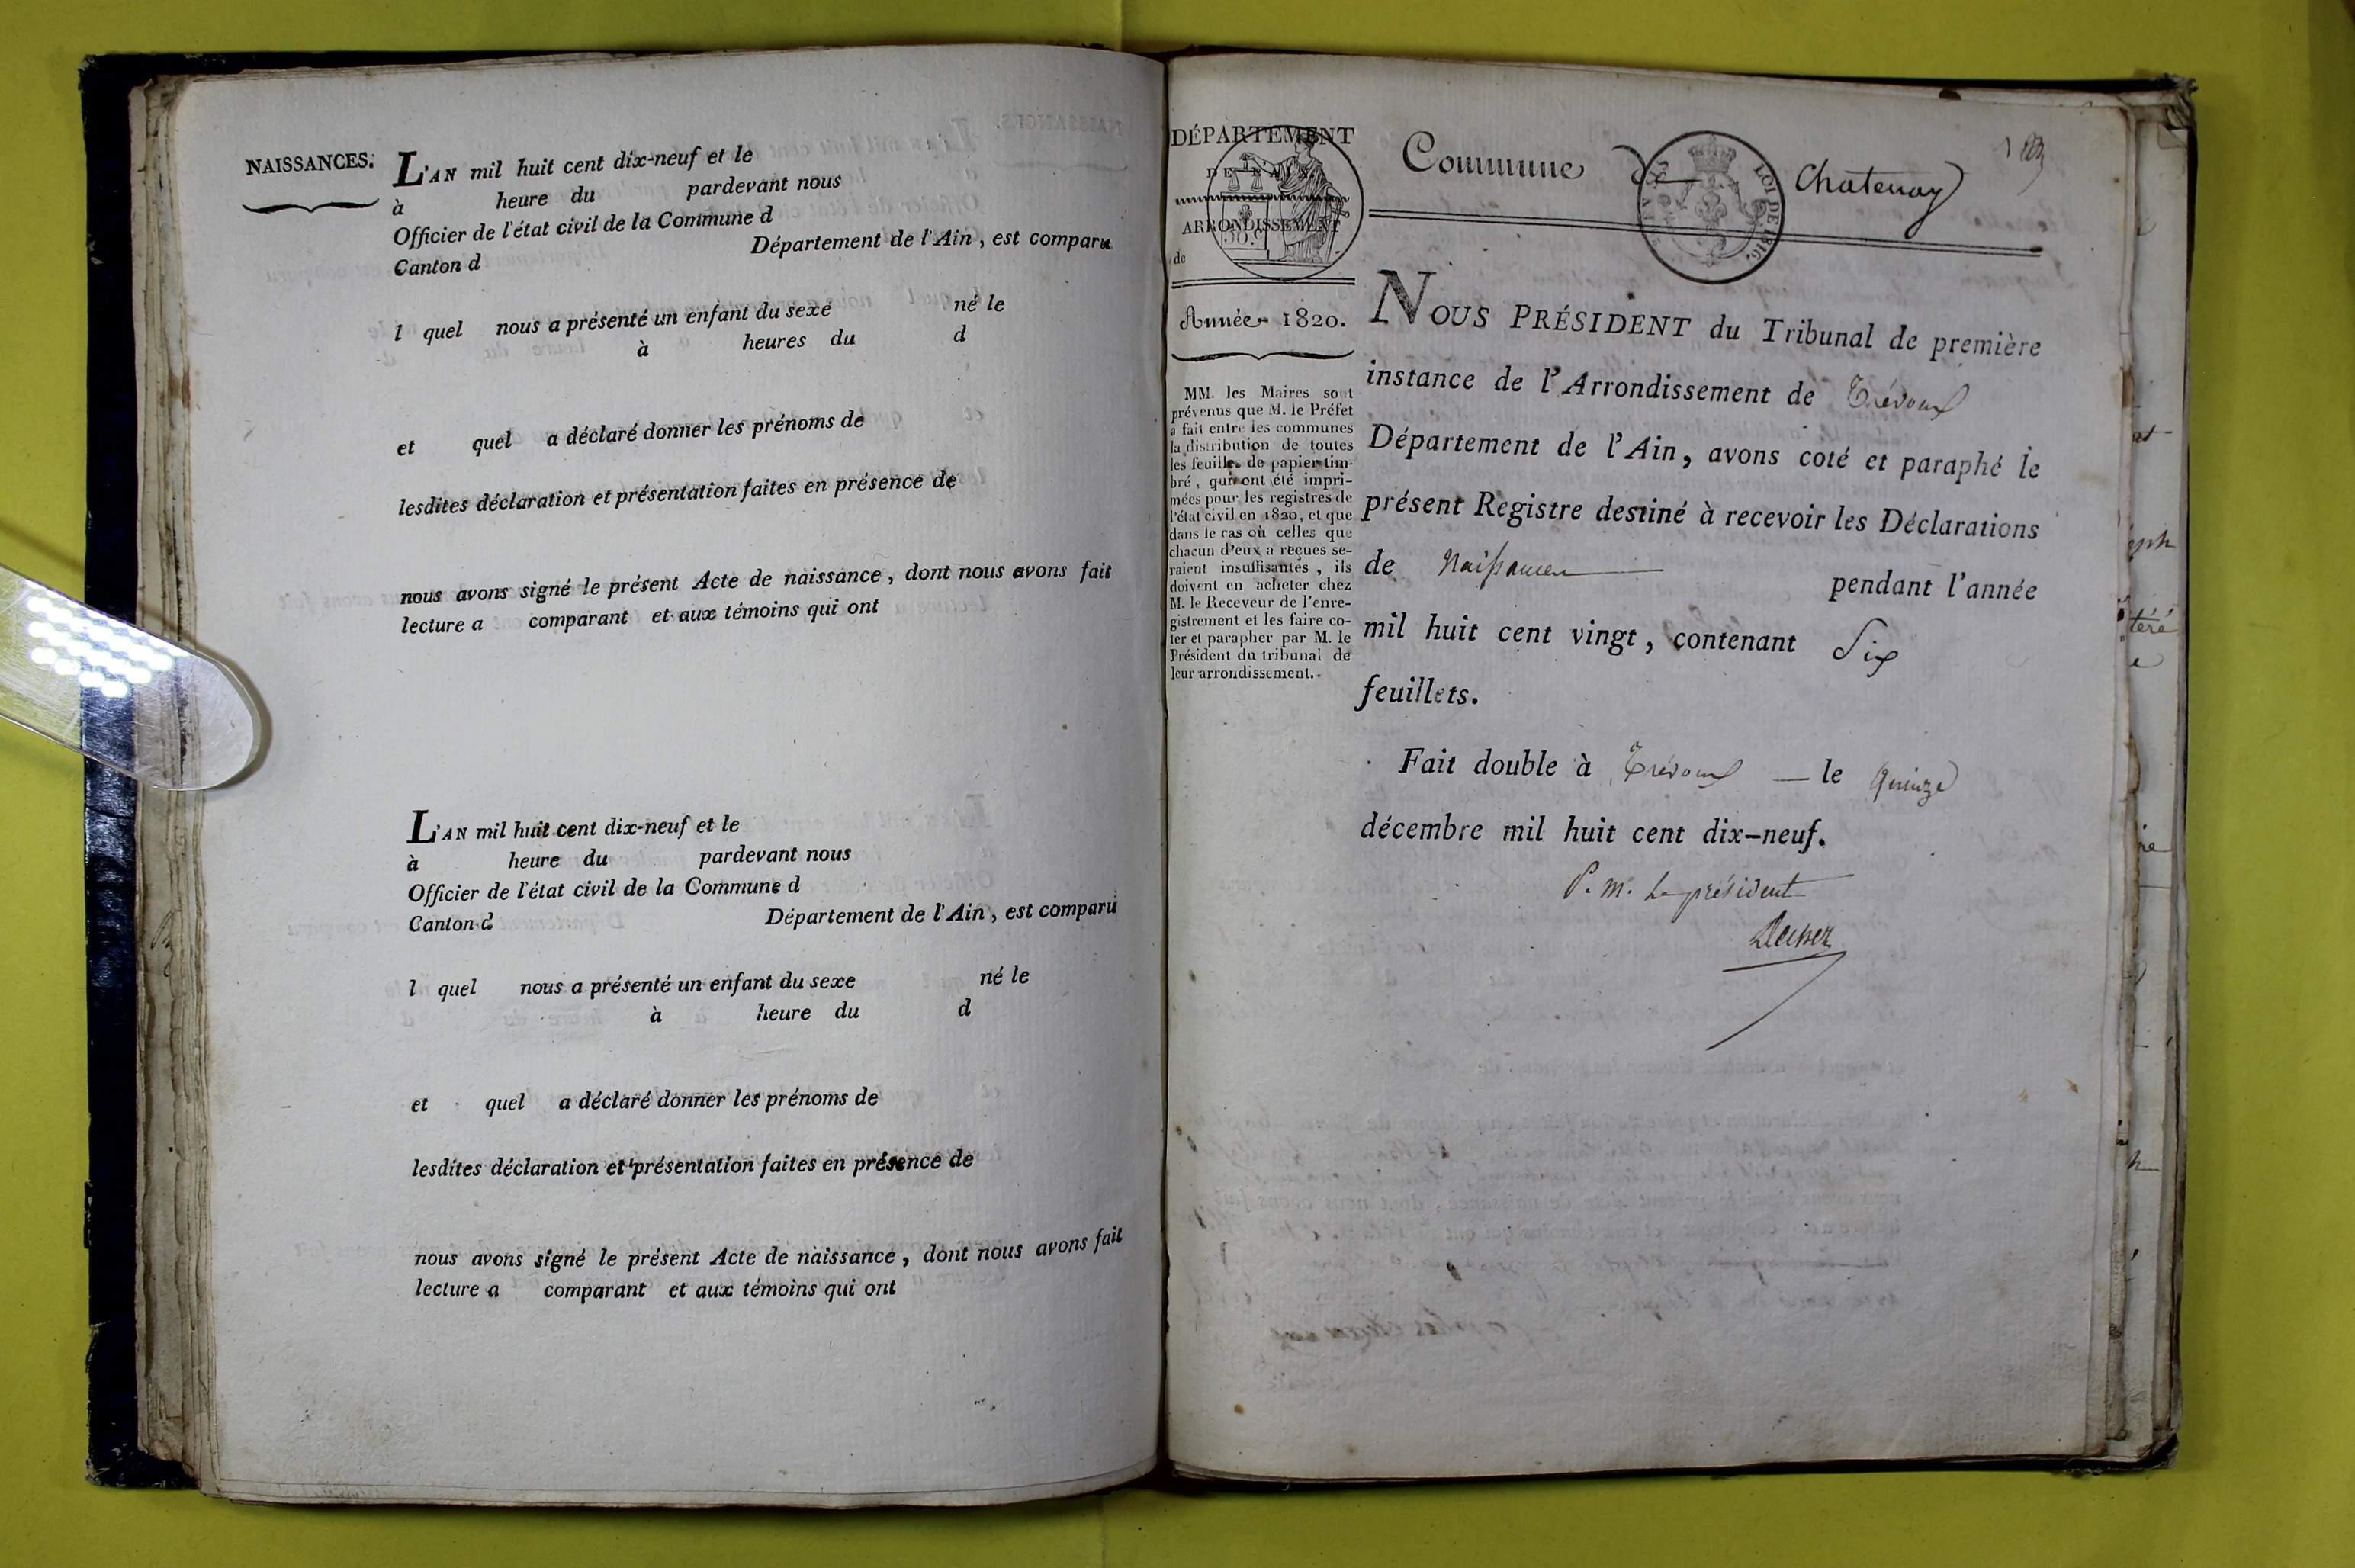 NAISSANCES.
L'AN mil huit cent dix-neuf et le
à heure du pardevant nous
Officier de l'état civil de la Commune d
Canton d Département de l'Ain , est comparu
l quel nous a présenté un enfant du sexe né le
à heures du d
et quel a déclaré donner les prénoms de
lesdites déclaration et présentation faites en présence de
nous avons signé le présent Acte de naissance , dont nous avons fait
lecture a comparant et aux témoins qui ont
L'AN mil huit cent dix-neuf et le
à heure du pardevant nous
Officier de l'état civil de la Commune d
Canton d Département de l'Ain , est comparu
l quel nous a présenté un enfant du sexe né le
à heure du d
et quel a déclaré donner les prénoms de
lesdites déclaration et présentation faites en présence de
nous avons signé le présent Acte de naissance , dont nous avons fait
lecture a comparant et aux témoins qui ont
DÉPARTEMENT
DE L'AIN
ARRONDISSEMENT
de
Année 1820.
MM. les Maires sont
prévenus que M. le Préfet
a fait entre les communes
la distribution de toutes
les feuilles de papier tim-
bré , qui ont été impri-
mées pour les registres de
l'état civil en 1820, et que
dans le cas où celles que
chacun d'eux a reçues se-
raient insuffisantes , ils
doivent en acheter chez
M. le Receveur de l'enre-
gistrement et les faire co-
ter et parapher par M. le
Président du tribunal de
leur arrondissement.
Commune de Chatenay
LOI DE 1816.
NOUS PRÉSIDENT du Tribunal de première
instance de l'Arrondissement de Trévoux
Département de l'Ain, avons coté et paraphé le
présent Registre destiné à recevoir les Déclarations
de Naissances pendant l'année
mil huit cent vingt , contenant Six
feuillets.
Fait double à Trévoux — le quinze
décembre mil huit cent dix-neuf.
P. M. Le président